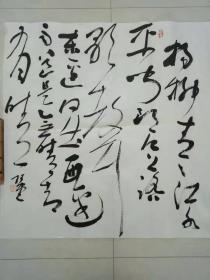 杨柳青々江水
平闻郎江上踏
歌声
东边日出西边
雨道是无晴却
有晴